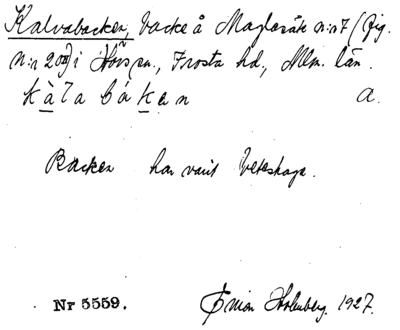 Kalvabacken, backe å Maglasäte n:r 7 (fig.
N:r 208) i Hörs sn., Frosta hd., Mlm. län.
kàlabákan a.
Backen har varit beteshage.
Nr 5559. Holmberg. 1927.